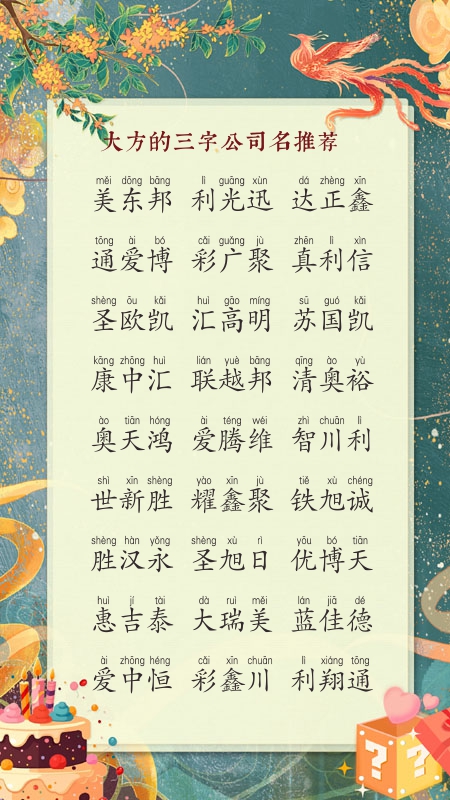 大方的三字公司名推荐
měi dōng bāng lì guāng xùn dá zhèng xīn
美东邦 利光迅 达正鑫
tōng ài bó cǎi guǎng jù zhēn lì xìn
通爱博 彩广聚 真利信
shèng ōu kǎi huì gāo míng sū guó kǎi
圣欧凯 汇高明 苏国凯
kāng zhōng huì lián yuè bāng qīng ào yù
康中汇 联越邦 清奥裕
ào tiān hóng ài téng wéi zhì chuān lì
奥天鸿 爱腾维 智川利
shì xīn shèng yào xīn jù tiě xù chéng
世新胜 耀鑫聚 铁旭诚
shèng hàn yǒng shèng xù rì yōu bó tiān
胜汉永 圣旭日 优博天
huì jí tài dà ruì měi lán jiā dé
惠吉泰 大瑞美 蓝佳德
ài zhōng héng cǎi xīn chuān lì xiáng tōng
爱中恒 彩鑫川 利翔通
? ?